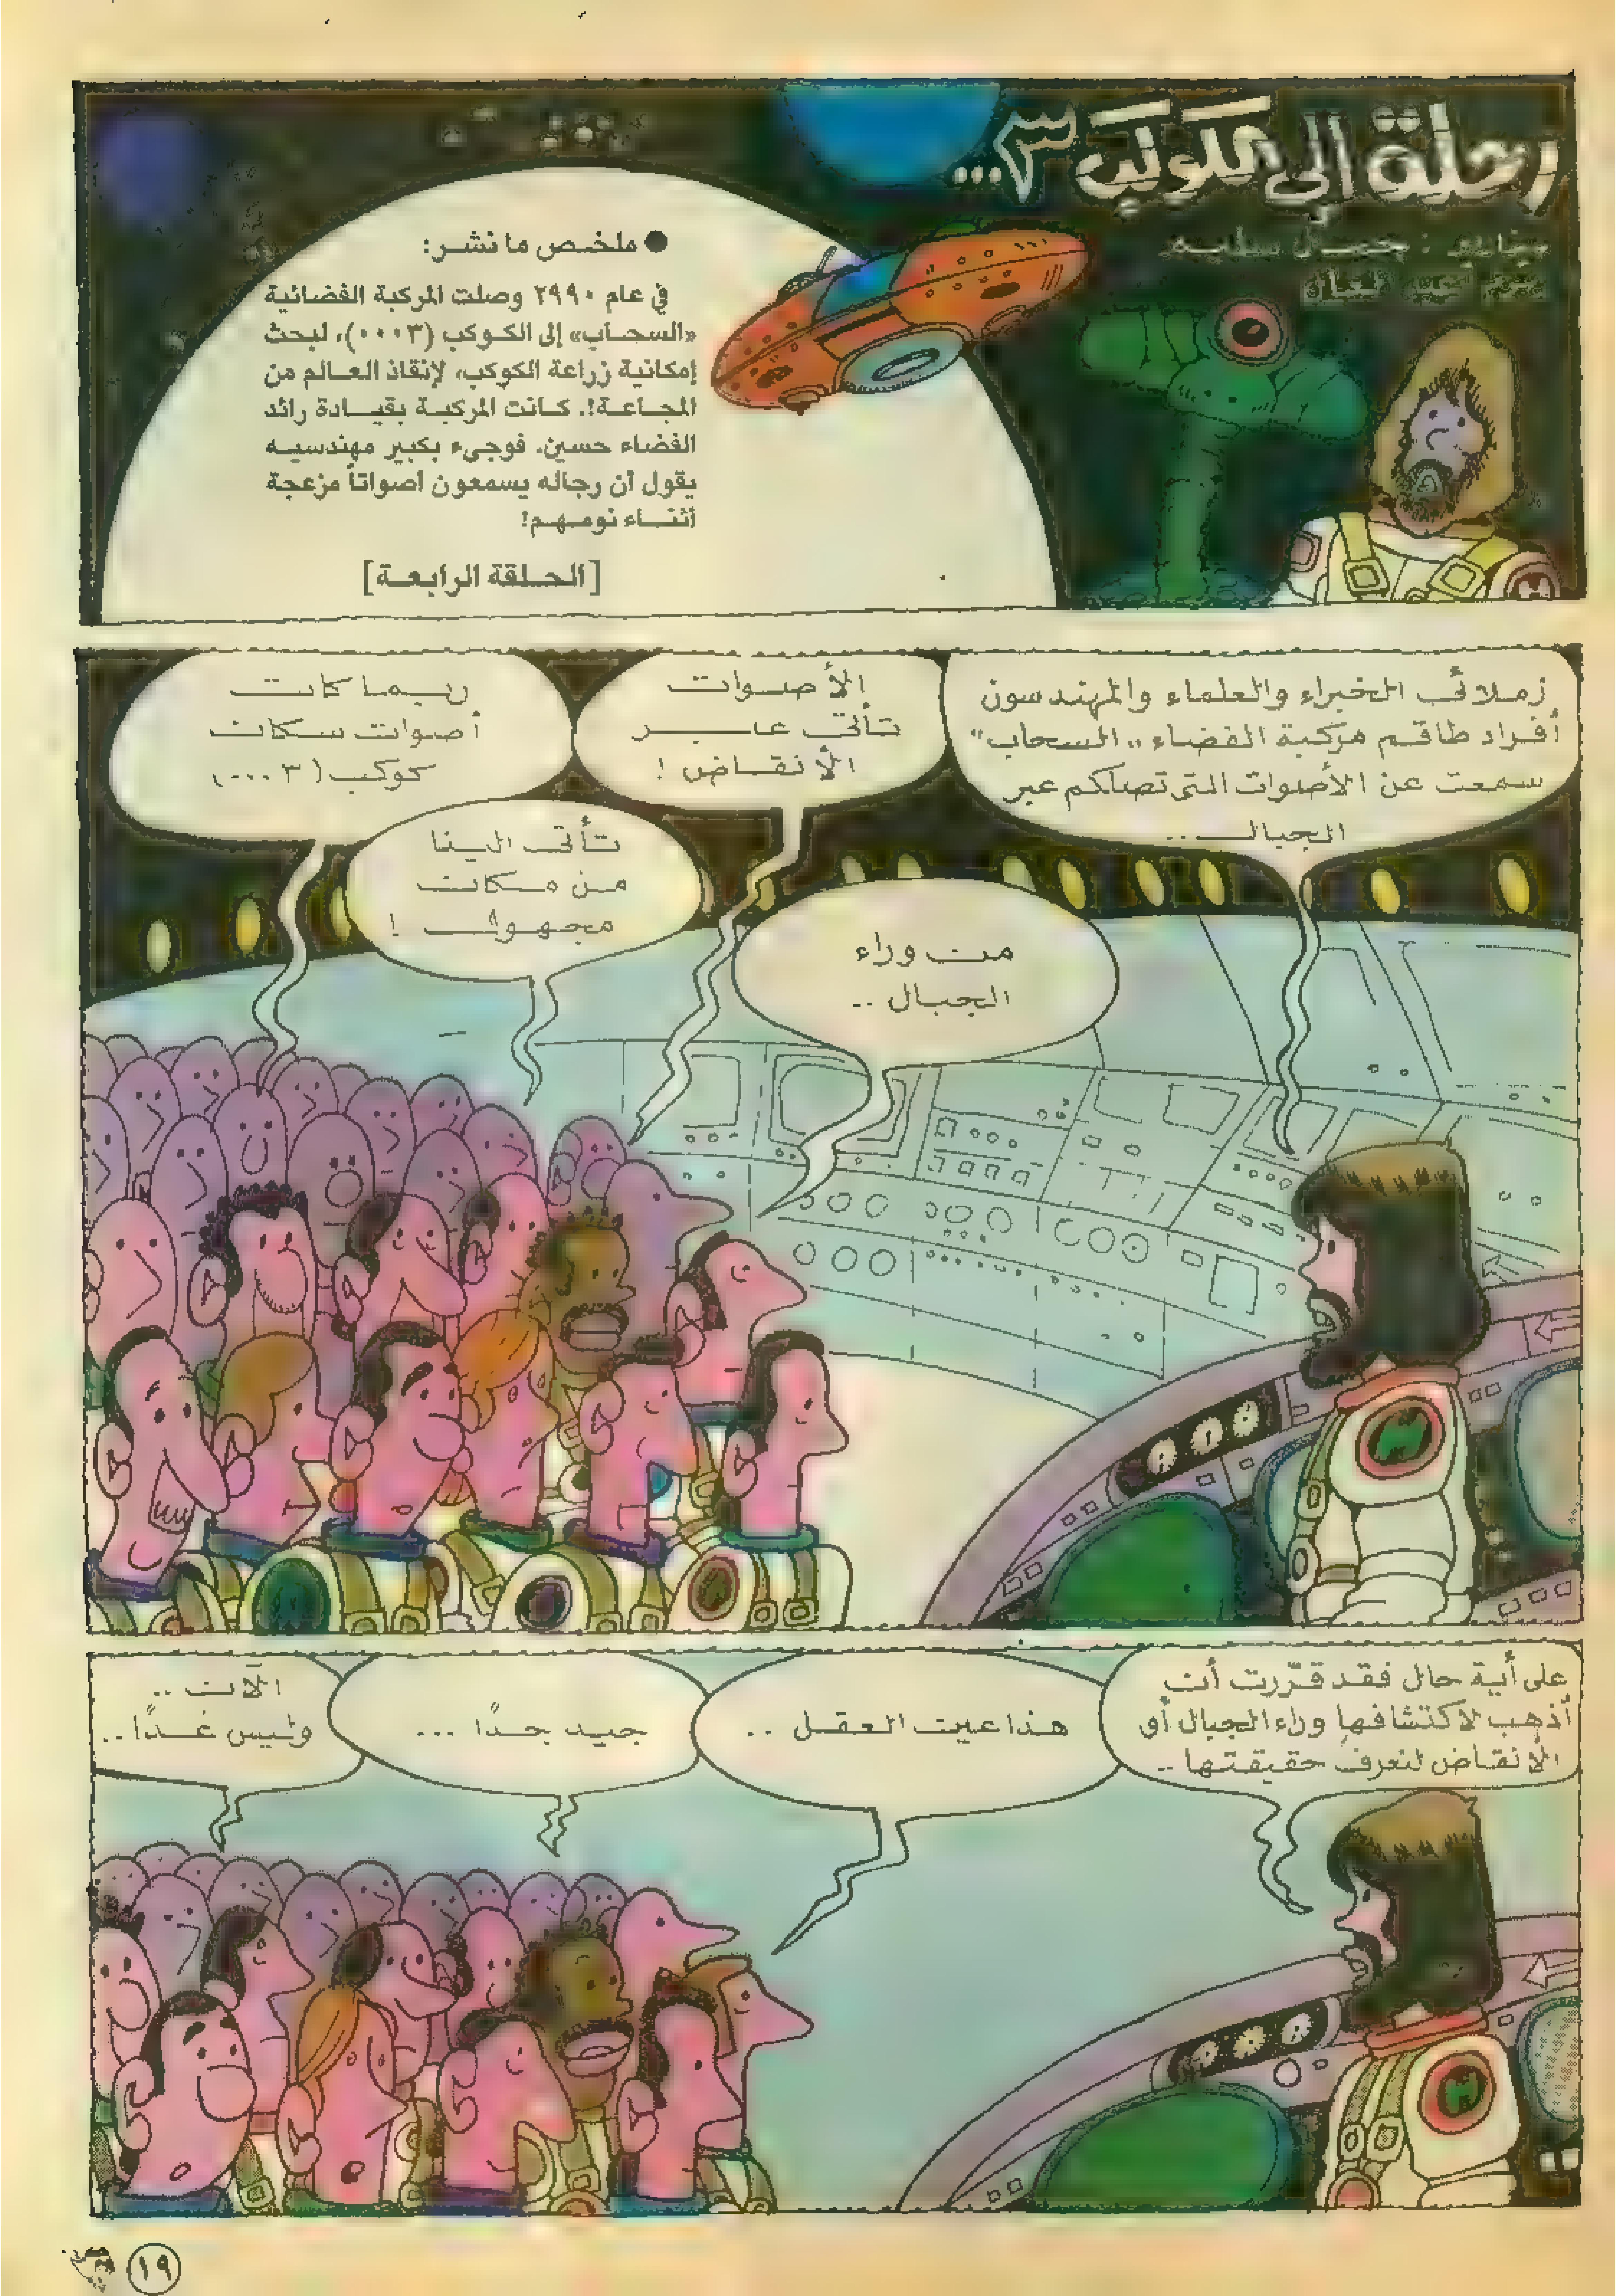 رحلة إلى الكوكب ٣...
سيناريو : جمال سليم
● ملخص ما نشر:
في عام ٢٩٩٠ وصلت المركبة الفضائية
«السحاب» إلى الكوكب (٠٠٠٣)، لبحث
إمكانية زراعة الكوكب، لإنقاذ العالم من
المجاعة!. كانت المركبة بقيادة رائد
الفضاء حسين. فوجىء بكبير مهندسيه
يقول أن رجاله يسمعون أصواتاً مزعجة
أثناء نومهم!
[الحلقة الرابعة]
زملائي الخبراء والعلماء والمهندسون
أفراد طاقم مركبة الفضاء "السحاب"
سمعت عن الأصوات التي تصلكم عبر
الجبال ..
الأصوات
تأتي عبر
الأنقاض !
ربما كانت
أصوات سكان
كوكب (٣ ٠٠٠)
تأتي الينا
من مكان
مجهول !
من وراء
الجبال ..
على أية حال فقد قرّرت أن
أذهب لاكتشافها وراء الجبال أو
الأنقاض لنعرف حقيقتها ..
هذا عين العقل ..
جيد جدًا ...
الآن ..
وليس غدًا ..
١٩